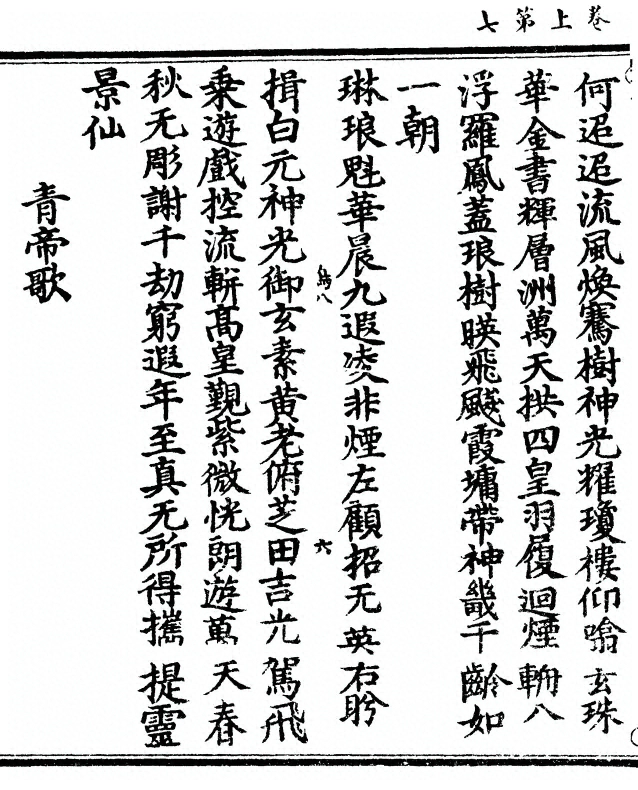 卷上第七
何迢迢流風煥騫樹神光耀瓊樓仰嗡玄珠
華金書輝層洲萬天拱四皇羽履迴煙輧八
浮羅鳳蓋琅樹暎飛飈霞墉帶神畿千齡如
一朝
琳琅魁華晨九遐淩非煙左顧招无英右盻
揖白元神光御玄素黄老俯芝田吉光駕飛
乗遊戲控流輧髙皇觀紫微恍朗遊萬天春
秋无彫謝千劫窮遐年至真无所得攜提靈
景仙
青帝歌
八
六